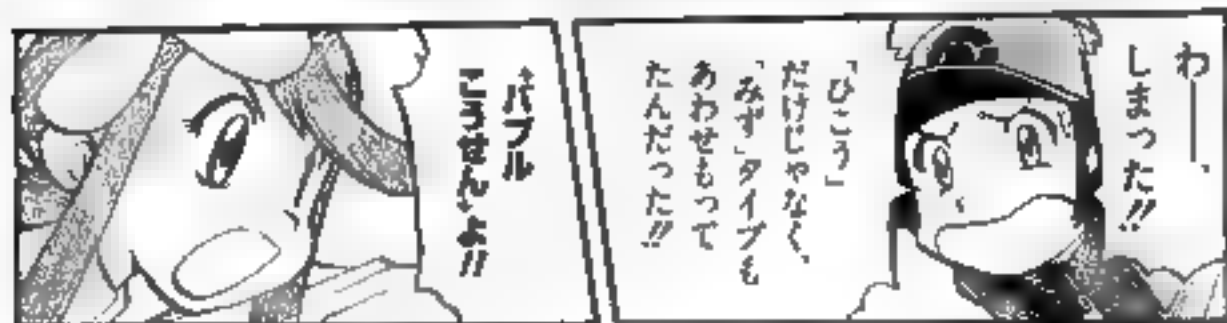 わ——、
しまった!!
「ひこう」
だけじゃなく、
「みず」タイプも
あわせもって
たんだった!!
“バブル
こうせん”よ!!